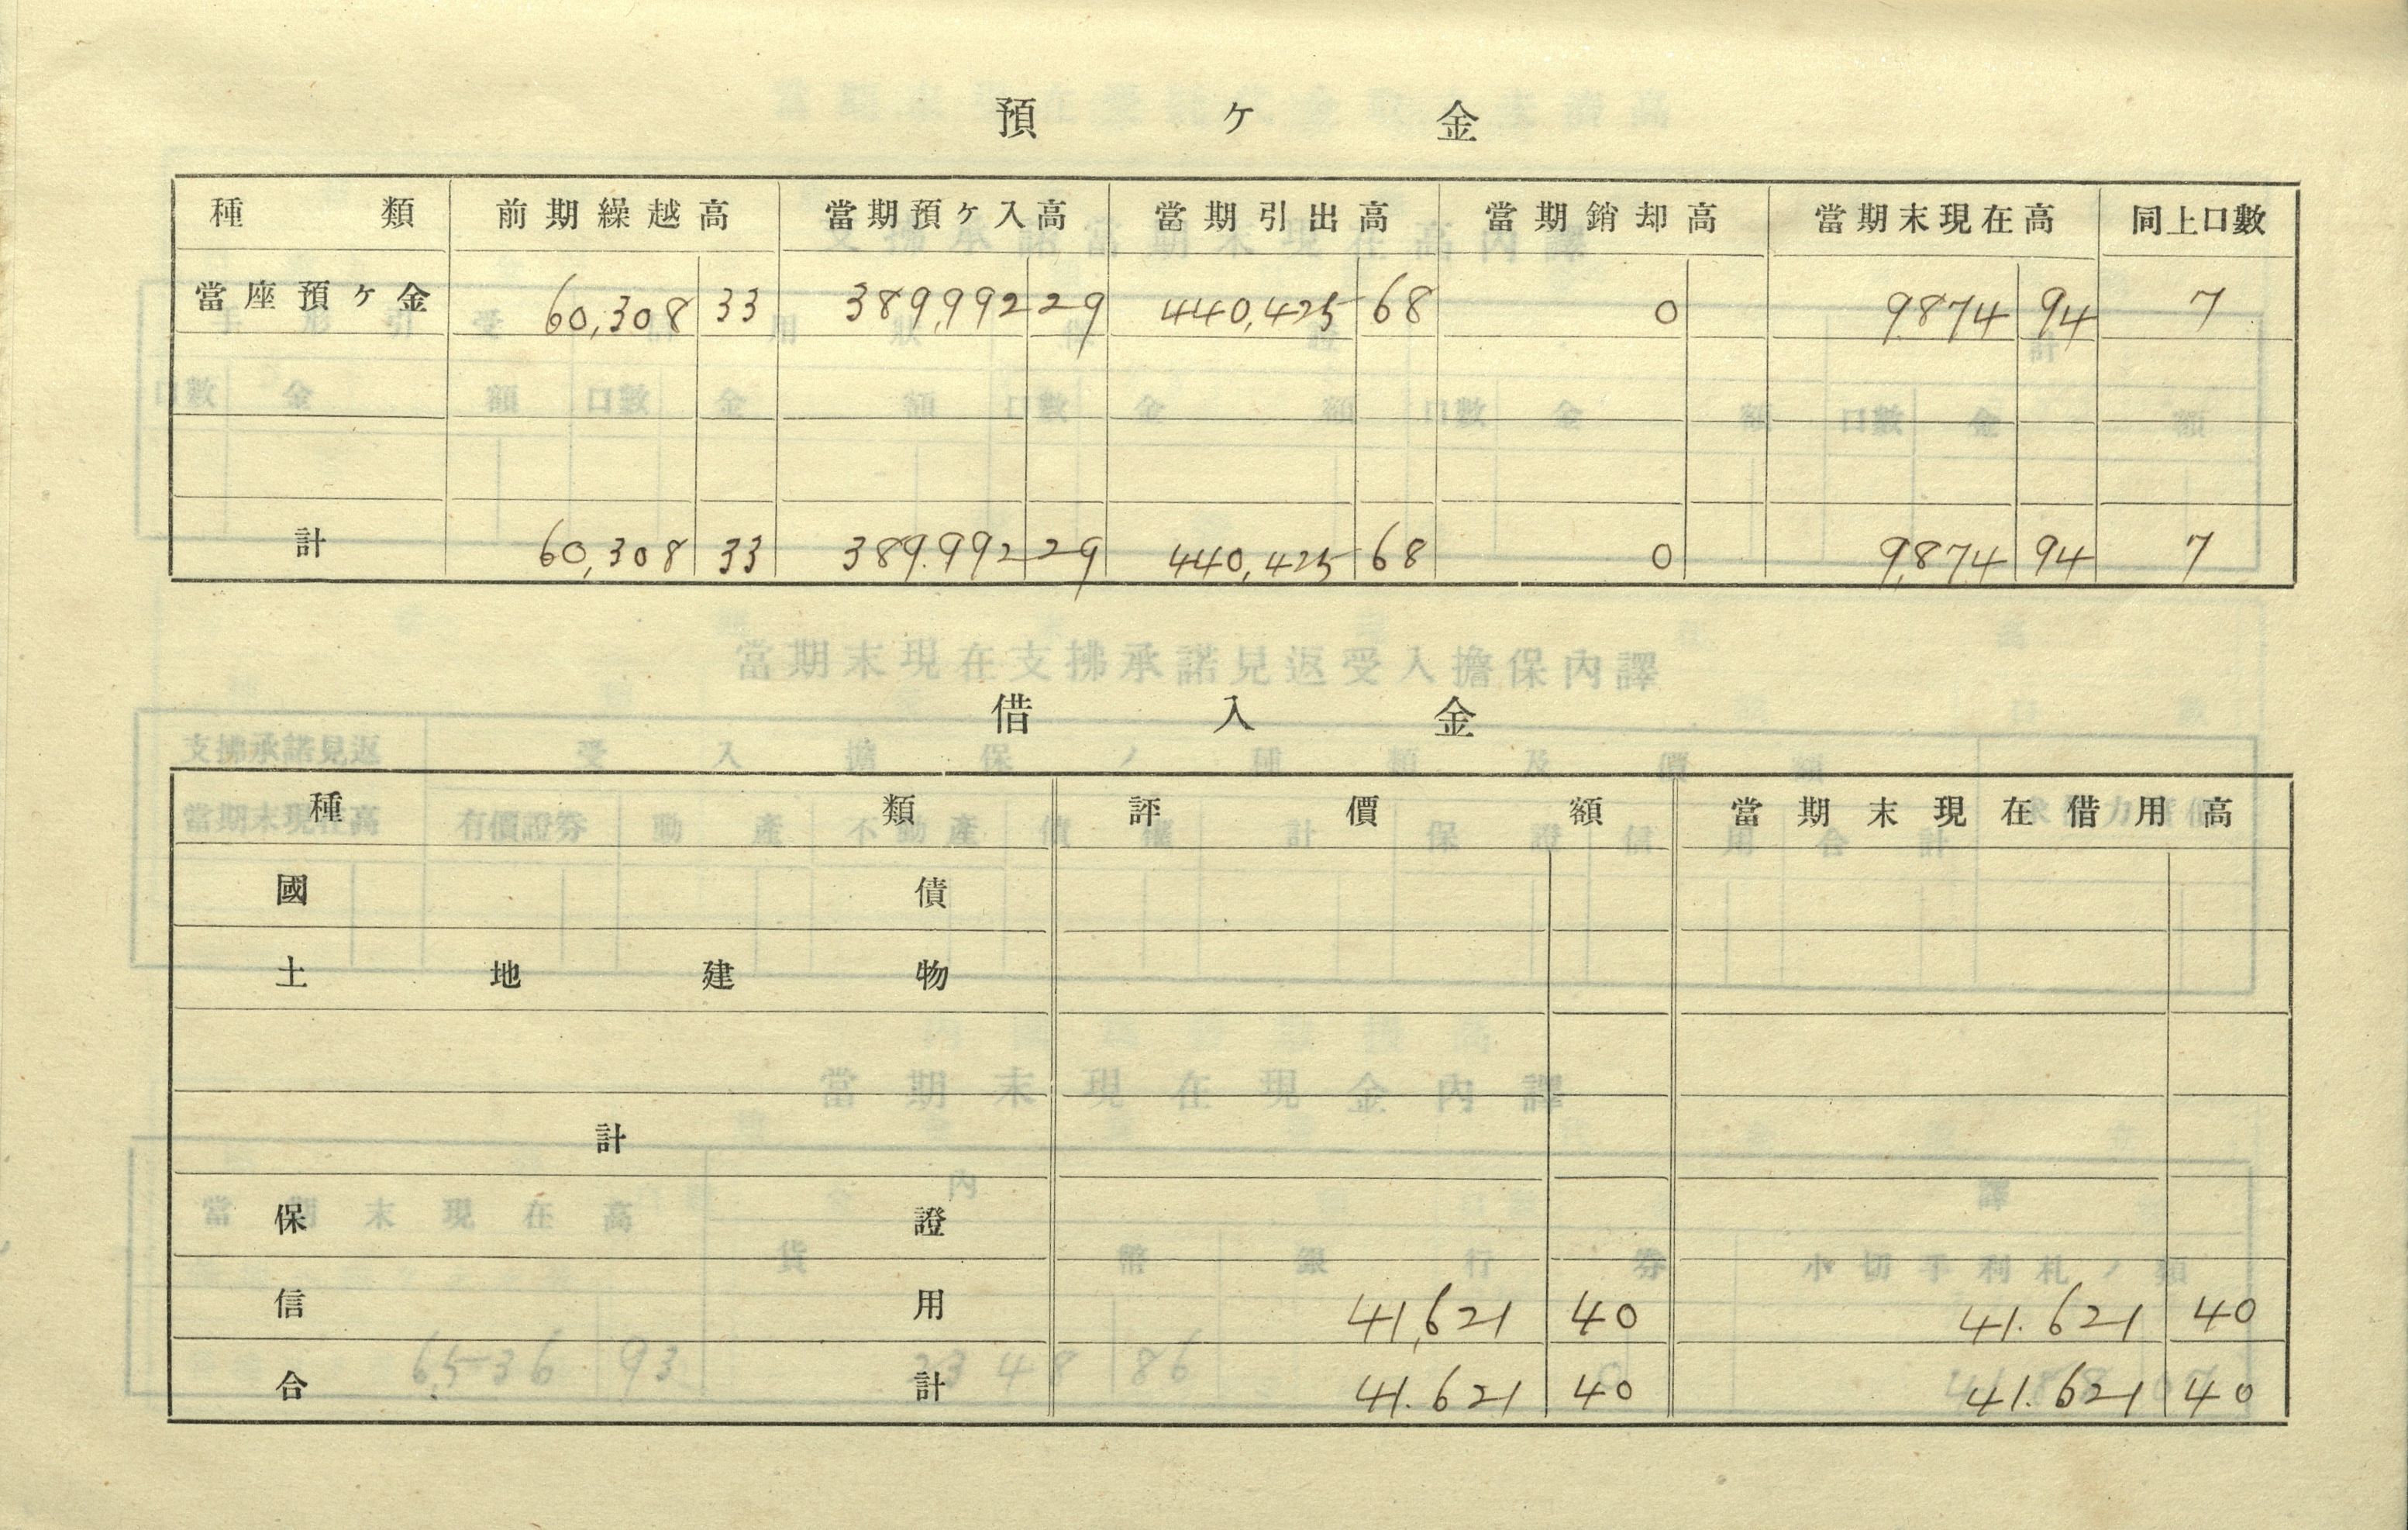 預ケ金
種類 前期繰越高 當期預ケ入高 當期引出高 當期銷却高 當期末現在高 同上口數
當座預ケ金 60,308 33 389,992 29 440,425 68 0 9,874 94 7
計 60,308 33 389.992 29 440,425 68 0 9,874 94 7
借入金
種類 評價額 當期末現在借用高
國債
土地建物
計
保證
信用 41,621 40 41.621 40
合計 41.621 40 41.621 40